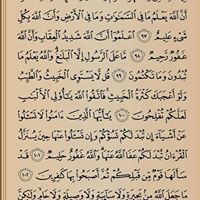 أَنَّ ٱللَّهَ يَعْلَمُ مَا فِى ٱلسَّمَٰوَٰتِ وَمَا فِى ٱلْأَرْضِ وَأَنَّ ٱللَّهَ بِكُلِّ
شَىْءٍ عَلِيمٌ ٩٧ ٱعْلَمُوٓا۟ أَنَّ ٱللَّهَ شَدِيدُ ٱلْعِقَابِ وَأَنَّ ٱللَّهَ
غَفُورٌ رَّحِيمٌ ٩٨ مَّا عَلَى ٱلرَّسُولِ إِلَّا ٱلْبَلَٰغُ وَٱللَّهُ يَعْلَمُ مَا
تُبْدُونَ وَمَا تَكْتُمُونَ ٩٩ قُل لَّا يَسْتَوِى ٱلْخَبِيثُ وَٱلطَّيِّبُ
وَلَوْ أَعْجَبَكَ كَثْرَةُ ٱلْخَبِيثِ فَٱتَّقُوا۟ ٱللَّهَ يَٰٓأُو۟لِى ٱلْأَلْبَٰبِ
لَعَلَّكُمْ تُفْلِحُونَ ١٠٠ يَٰٓأَيُّهَا ٱلَّذِينَ ءَامَنُوا۟ لَا تَسْـَٔلُوا۟
عَنْ أَشْيَآءَ إِن تُبْدَ لَكُمْ تَسُؤْكُمْ وَإِن تَسْـَٔلُوا۟ عَنْهَا حِينَ يُنَزَّلُ
ٱلْقُرْءَانُ تُبْدَ لَكُمْ عَفَا ٱللَّهُ عَنْهَا وَٱللَّهُ غَفُورٌ حَلِيمٌ ١٠١ قَدْ
سَأَلَهَا قَوْمٌ مِّن قَبْلِكُمْ ثُمَّ أَصْبَحُوا۟ بِهَا كَٰفِرِينَ ١٠٢
مَا جَعَلَ ٱللَّهُ مِنۢ بَحِيرَةٍ وَلَا سَآئِبَةٍ وَلَا وَصِيلَةٍ وَلَا حَامٍ وَلَٰكِنَّ